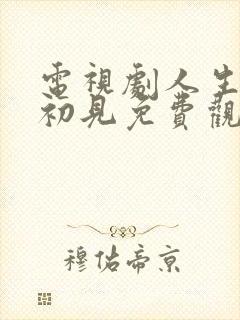 電視劇人生
初見免費觀
穆佑帝京